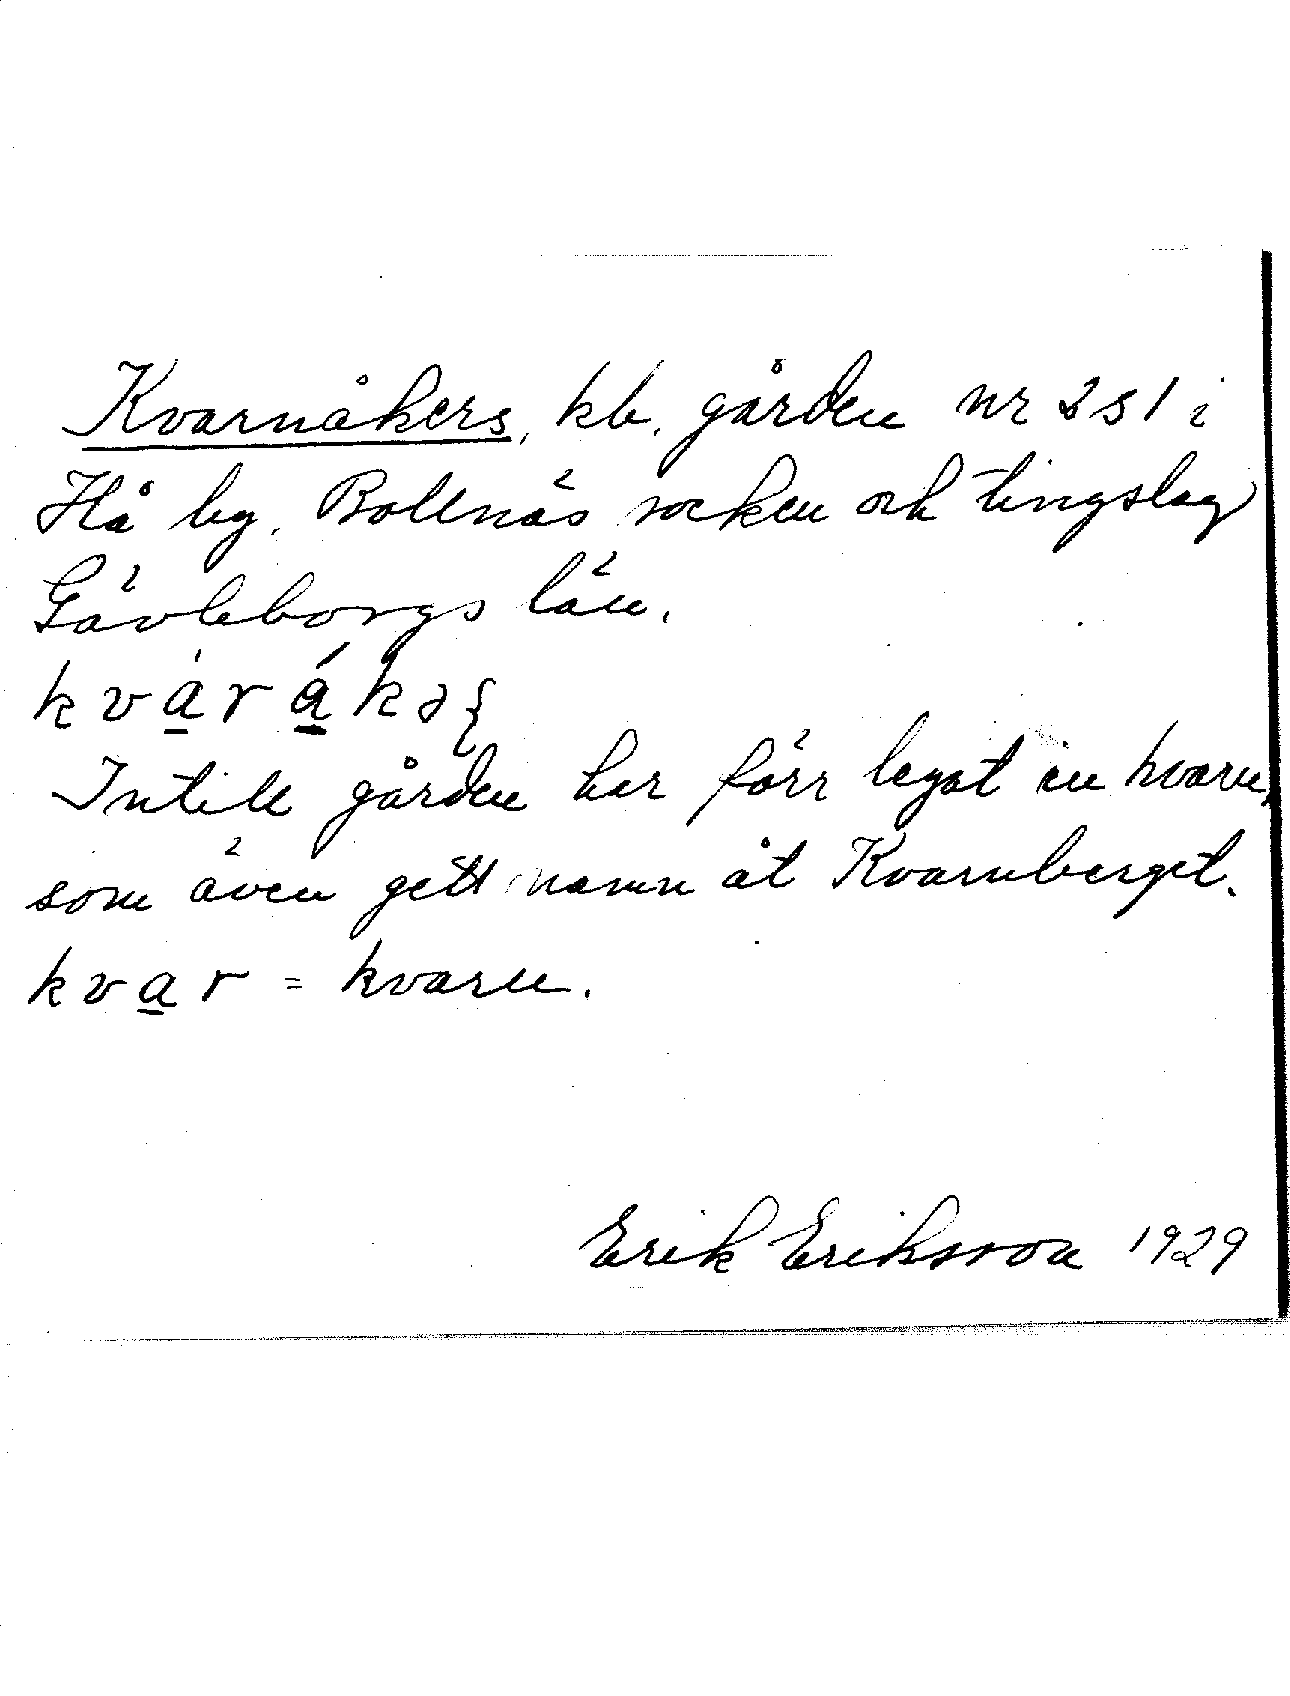 Kvarnåkers, kb. gården nr 2 s 1 i
Hå by, Bollnäs socken och tingslag
Gävleborgs län.
kvàrákəʂ
Intill gården har förr legat en kvarn,
som även gett namn åt Kvarnberget.
kvar = kvarn.
Erik Eriksson 1929